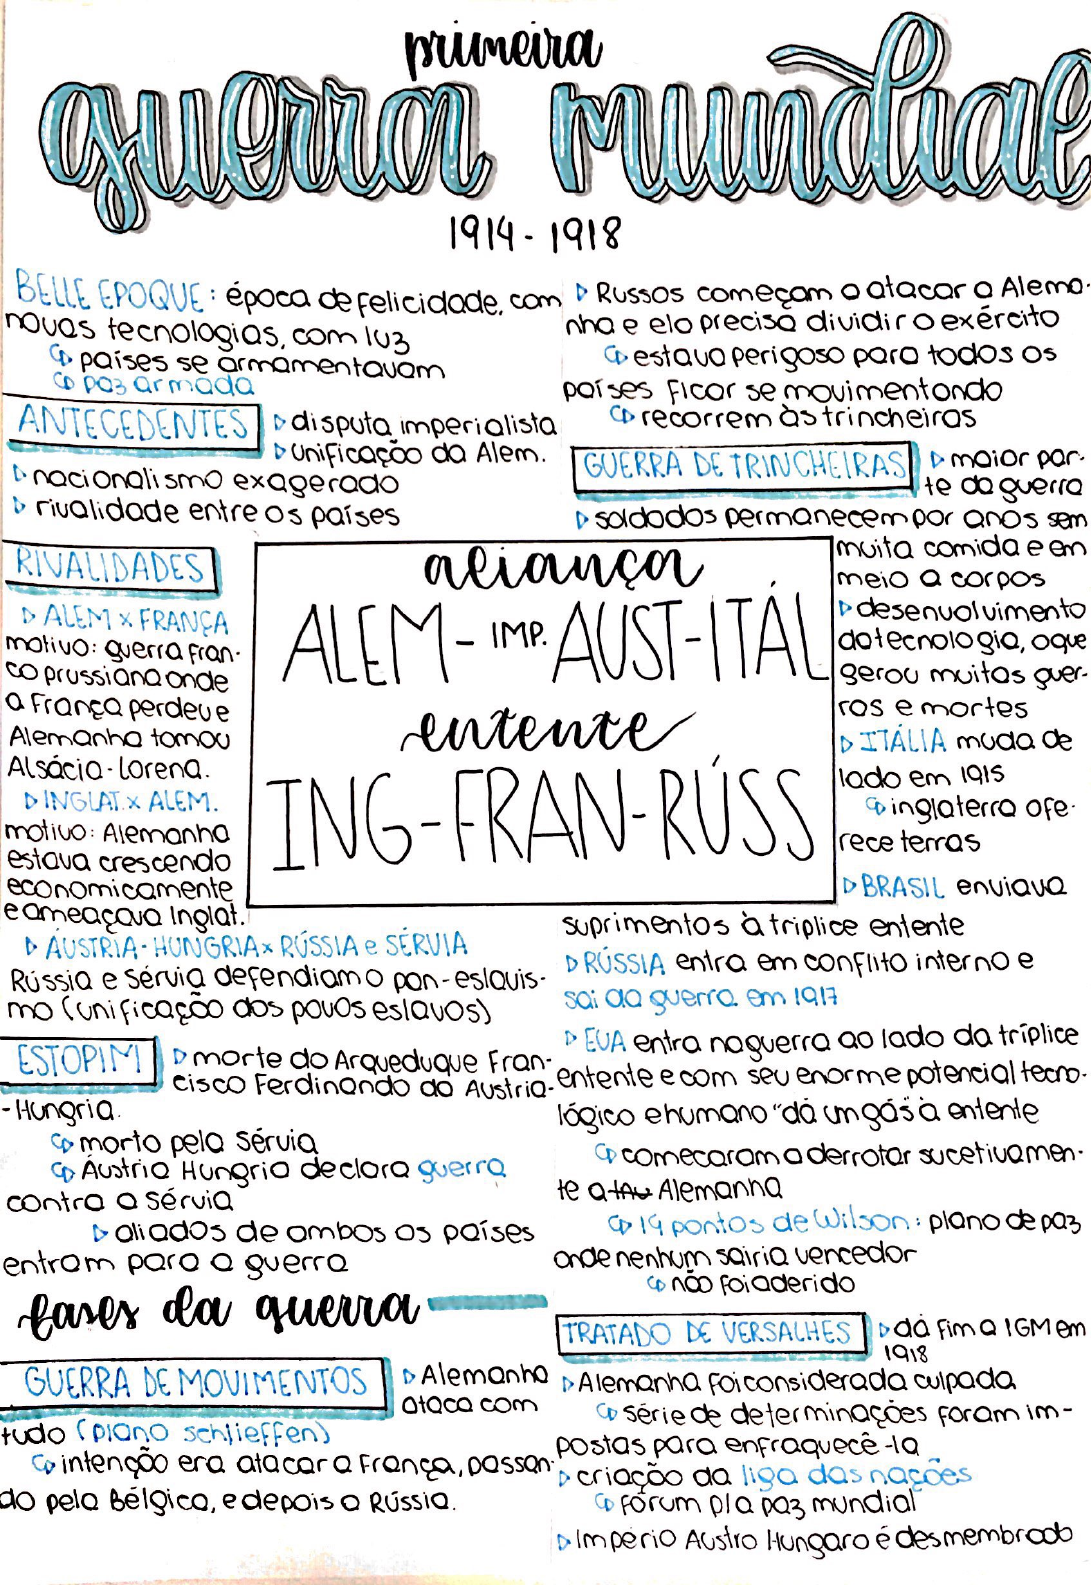 primeira
guerra mundial
1914 - 1918
BELLE EPOQUE: época de felicidade, com
novas tecnologias, com luz
países se armamentavam
paz armada
ANTECEDENTES
▷ disputa imperialista
▷ unificação da Alem.
▷ nacionalismo exagerado
▷ rivalidade entre os países
RIVALIDADES
▷ ALEM x FRANÇA
motivo: guerra fran-
co prussiana onde
a França perdeu e
Alemanha tomou
Alsácia-Lorena.
▷ INGLAT. x ALEM.
motivo: Alemanha
estava crescendo
economicamente
e ameaçava Inglat.
▷ ÁUSTRIA-HUNGRIA x RÚSSIA e SÉRVIA
Rússia e Sérvia defendiam o pan-eslavis-
mo (unificação dos povos eslavos)
ESTOPIM
▷ morte do Arqueduque Fran-
cisco Ferdinando da Austria-
-Hungria.
morto pela Sérvia
Áustria Hungria declara guerra
contra a Sérvia
▷ aliados de ambos os países
entram para a guerra
fases da guerra
GUERRA DE MOVIMENTOS
▷ Alemanha
ataca com
tudo (plano schlieffen)
intenção era atacar a França, passan-
do pela Bélgica, e depois a Rússia.
aliança
ALEM - IMP. AUST-ITÁL
entente
ING-FRAN-RÚSS
▷ Russos começam a atacar a Alema-
nha e ela precisa dividir o exército
estava perigoso para todos os
países ficar se movimentando
recorrem às trincheiras
GUERRA DE TRINCHEIRAS
▷ maior par-
te da guerra
▷ soldados permanecem por anos sem
muita comida e em
meio a corpos
▷ desenvolvimento
da tecnologia, o que
gerou muitas guer-
ras e mortes
▷ ITÁLIA muda de
lado em 1915
inglaterra ofe-
rece terras
▷ BRASIL enviava
suprimentos à tríplice entente
▷ RÚSSIA entra em conflito interno e
sai da guerra em 1917
▷ EUA entra na guerra ao lado da tríplice
entente e com seu enorme potencial tecno-
lógico e humano "dá um gás" à entente
comecaram a derrotar sucetivamen-
te a Alemanha
14 pontos de Wilson: plano de paz
onde nenhum sairia vencedor
não foi aderido
TRATADO DE VERSALHES
▷ dá fim a 1GM em
1918
▷ Alemanha foi considerada culpada
série de determinações foram im-
postas para enfraquecê-la
▷ criação da liga das nações
fórum p/ a paz mundial
▷ Império Austro Hungaro é desmembrado